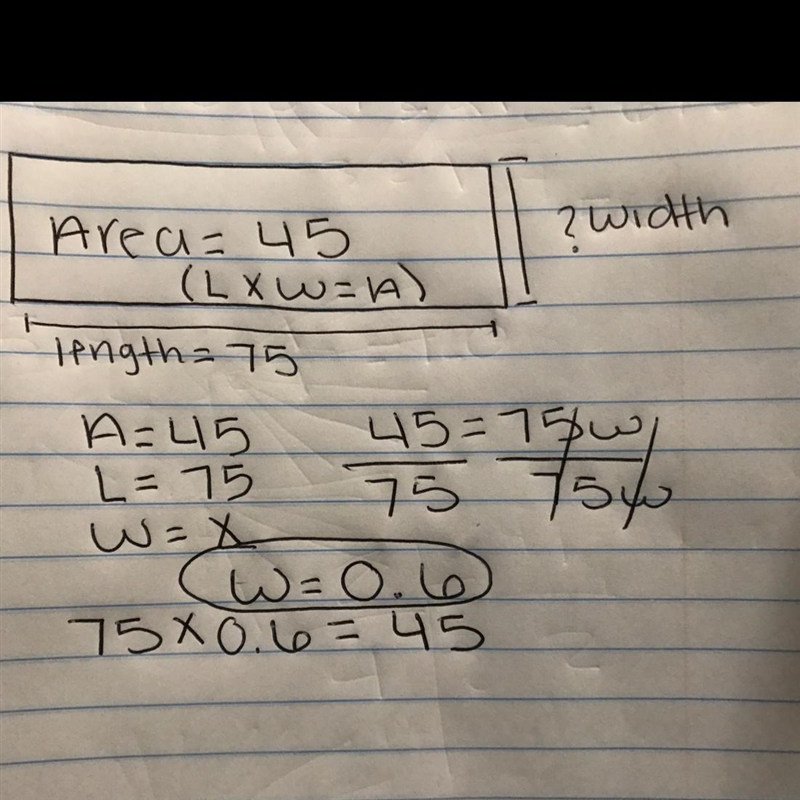 Area = 45
(L x W = A)
? width
length = 75
A = 45
L = 75
W = x
45 = 75w
75 75w
W = 0.6
75 x 0.6 = 45